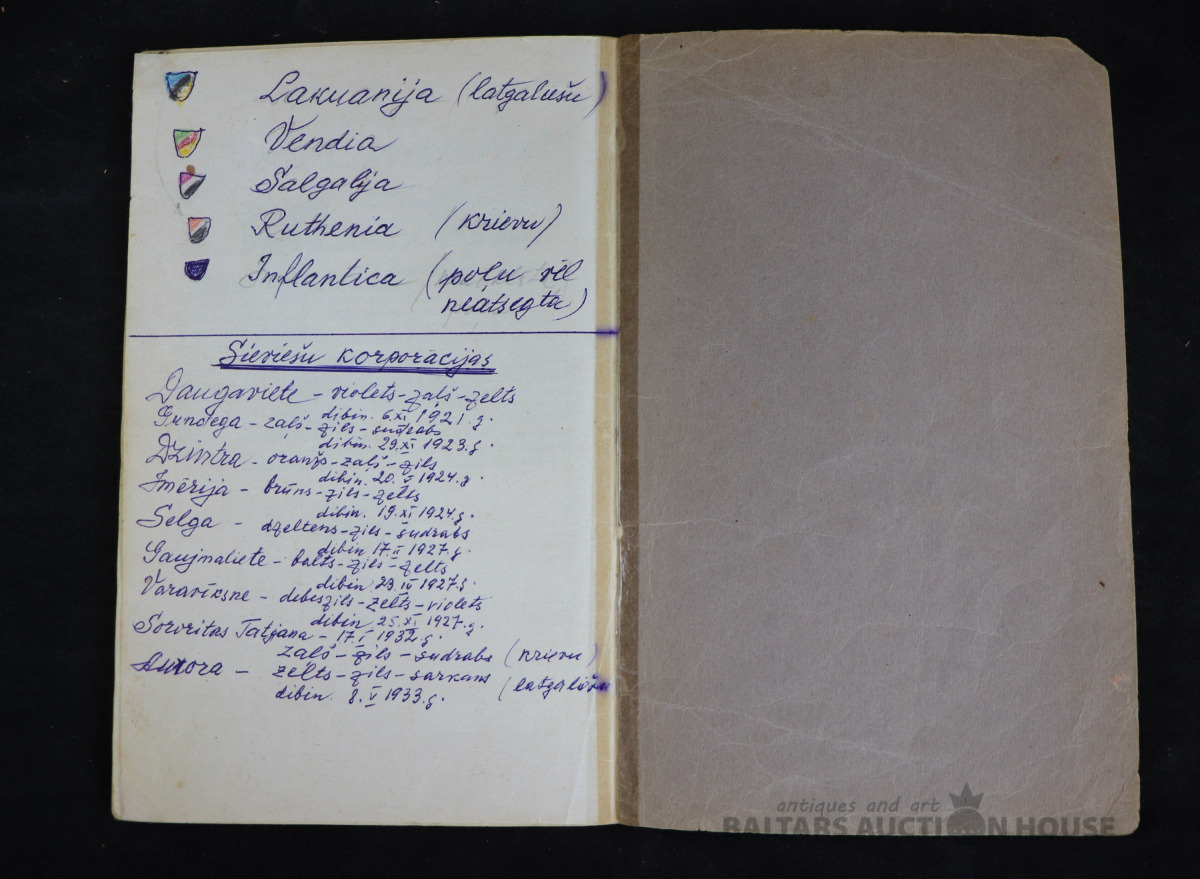 Lakuanija (latgaliešu)
Vendia
Salgalija
Ruthenia (krievu)
Inflantica (poļu vēl
neatsegta)
Sieviešu korporācijas
Daugaviete - violets-zaļš-zelts
dibin. 6.XI 1921.g.
Gundega - zaļš-zils-sudrabs
dibin. 29.XI 1923.g.
Dzintra - oranžs-zaļš-zils
dibin. 20.V 1924.g.
Imērija - brūns-zils-zelts
dibin. 19.XI 1924 g.
Selga - dzeltens-zils-sudrabs
dibin 17.II 1927.g.
Gaujmaliete - balts-zils-zelts
dibin 23.IV 1927.g.
Varavīksne - debeszils-zelts-violets
dibin 25.XI 1927.g.
Sororitas Tatjana - 17.I 1932.g.
zaļš-zils-sudrabs (krievu)
Aurora - zelts-zils-sarkans
dibin. 8.V 1933.g. (latgaliešu
antiques and art
BALTARS AUCTION HOUSE